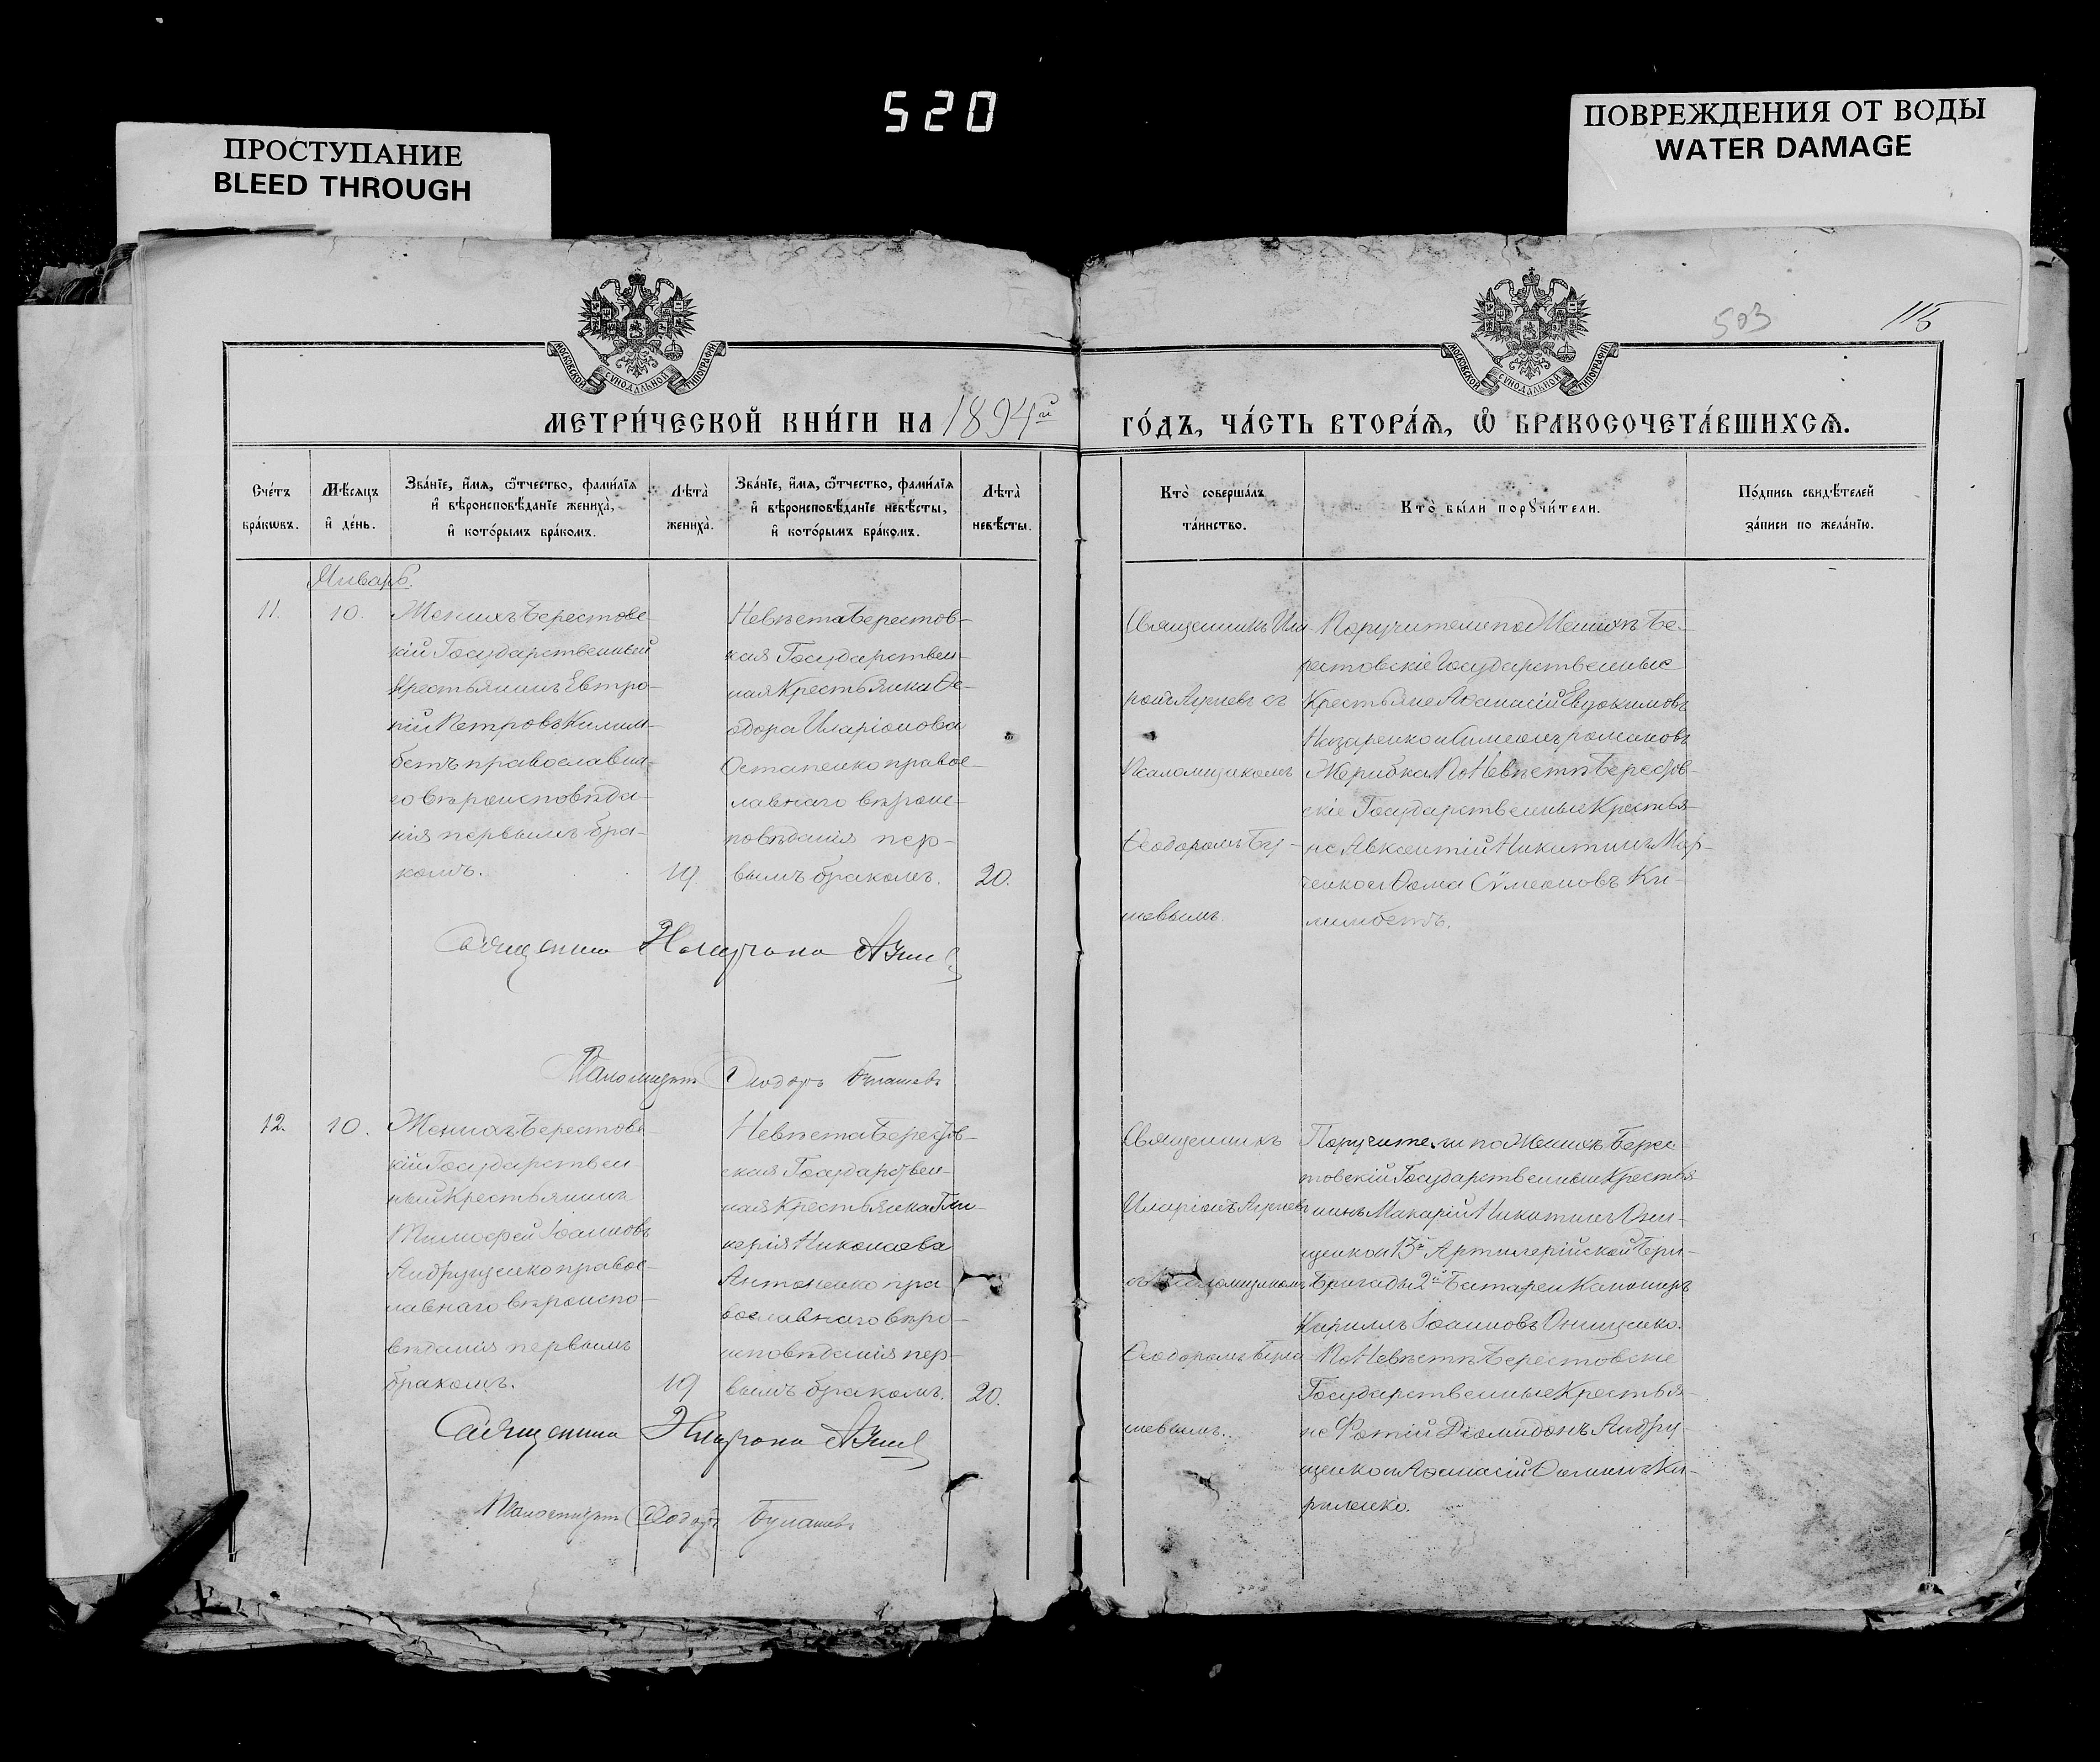 520
ПРОСТУПАНИЕ
BLEED THROUGH
ПОВРЕЖДЕНИЯ ОТ ВОДЫ
WATER DAMAGE
503
115
МОСКОВСКОЙ СУНОДАЛЬНОЙ ТИПОГРАФІИ
МОСКОВСКОЙ СУНОДАЛЬНОЙ ТИПОГРАФІИ
МЕТРИ́ЧЕСКОЙ КНИ́ГИ НА 1894й ГО́ДЪ, ЧА́СТЬ ВТОРА́Ѧ, Ѡ҆ БРАКОСОЧЕТА́ВШИХСѦ.
Сче́тъ бра́кѡвъ.
Мѣ́сѧцъ и҆ де́нь.
Зва́нїе, и҆́мѧ, ѻ҆́тчество, фами́лїѧ и҆ вѣроисповѣ́данїе жениха̀, и҆ кото́рымъ бра́комъ.
Лѣта̀ жениха̀.
Зва́нїе, и҆́мѧ, ѻ҆́тчество, фами́лїѧ и҆ вѣроисповѣ́данїе невѣ́сты, и҆ кото́рымъ бра́комъ.
Лѣта̀ невѣ́сты.
Кто̀ соверша́лъ та́инство.
Кто̀ бы́ли порꙋчи́тели.
По́дпись свидѣ́телей за́писи по жела́нїю.
Январь.
11.
10.
Женихъ Берестовс-
кій Государственный
Крестьянинъ Евтро-
пій Петровъ Килим-
бетъ православна-
го вѣроисповѣда-
нія первымъ бра-
комъ.
19.
Невѣста Берестов-
ская Государствен-
ная Крестьянка Ѳе-
одора Иларіонова
Остапенко правос-
лавнаго вѣроис-
повѣданія пер-
вымъ бракомъ.
20.
Священникъ Ила-
ріонъ съ
Псаломщикомъ
Ѳеодоромъ
шевымъ.
Поручители по Женихѣ Бе-
рестовскіе Государственные
Крестьяне Аѳанасій Евдокимовъ
Назаренко и Симеонъ Романовъ
Жерибка По Невѣстѣ Берестов-
скіе Государственные Крестья-
не Авксентій Никитинъ Мар-
ченко и Ѳома Сѵмеоновъ Ки-
лимбетъ.
Священникъ
Псаломщикъ Ѳеодоръ
12.
10.
Женихъ Берестовс-
кій Государствен-
ный Крестьянинъ
Тимофей Іоанновъ
Андрущенко правос-
лавнаго вѣроиспо-
вѣданія первымъ
бракомъ.
19
Невѣста Берестов-
ская Государствен-
ная Крестьянка Гли-
керія Николаева
Антоненко пра-
вославнаго вѣро-
исповѣданія пер-
вымъ бракомъ.
20.
Священникъ
Иларіонъ
съ Псаломщикомъ
Ѳеодоромъ
шевымъ.
Поручители по Женихѣ Берес-
товскій Государственный Крестья-
нинъ Макарій Никитинъ Они-
щенко и 13й Артилерійской
Бригады 2й Батареи Канониръ
Кириллъ Іоанновъ Онищенко.
По Невѣстѣ Берестовскіе
Государственные Крестья-
не Фотій Діомидовъ Андру-
щенко и Аѳанасій Ѳоминъ Ки-
риленко.
Священникъ
Псаломщикъ Ѳеодоръ